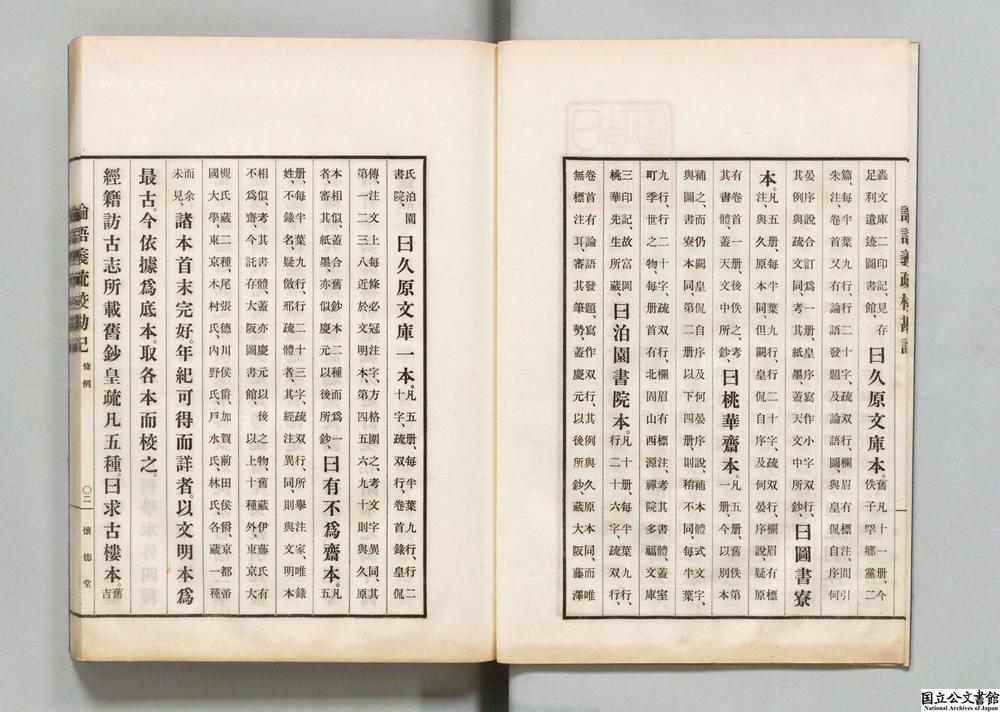 論語義疏校勘記
轟文庫二印記、見存
足利遺迹圖書館、
曰久原文庫本。
舊凡十一册、今
佚子罕鄕黨二
篇、每半葉九行、行二十字、疏雙行、欄眉有標注、間引
朱注、卷首又有論語發題及論語圖、與皇侃自序何
晏序說合訂爲一册、皇序寫作小字雙行、
其例與疏文同、考其紙墨、蓋天文中所鈔、
曰圖書寮
本。
凡五册、每半葉九行、行二十字、疏雙行、欄眉有標
注、與久原本同、但闕皇侃自序及何晏序說疑原
有卷首一册、後佚之、考
其書體、蓋天文中所鈔、
曰桃華齋本。
凡五册、舊佚第
一册、今以別本
補之、而仍闕皇侃自序及何晏序說、補本體式文字、
與圖書寮本同、第二册以下四册、則稍不同、每半葉
九行、行二十字、疏双行、欄眉有標注、考其書體、蓋室
町季世之物、每册首有北固山西源禪院多福文庫
三印記、故富岡
桃華先生所藏、
曰泊園書院本。
凡十册、每半葉九行、
行二十六字、疏双行、
卷首有論語發題、寫作双行、其例與久原本同、而唯
無標注耳、審其筆勢、蓋慶元以後所鈔、藏大阪藤澤
氏泊園
書院、
曰久原文庫一本。
凡五册、每半葉九行、行二
十字、疏双行、卷首錄皇侃
傳、注文上每條必冠注字、方格圍之、考文字異同、其
第一二三八近於文明本、第四五六九十則與久原
本相似、蓋合舊鈔本二種、而爲一
者、審其紙墨、亦似慶元以後所鈔、
曰有不爲齋本。
凡
五
册、每半葉九行、行二十三字、疏双行、所擧注家、唯錄
姓不錄名、疑倣邢疏體者、其經注異同、則與文明本
相似、考其書體、蓋亦慶元以後之物、舊藏伊藤氏有
不爲齋、今託存大阪圖書館、以上十種外、東京大
槻氏藏二種、尾張德川侯爵、加賀前田侯爵、京都帝
國大學、東京木村氏、內野氏、戶水氏、林氏、各藏一種
而余
未見、
諸本首末完好。年紀可得而詳者。以文明本爲
最古。今依據爲底本。取各本而校之。
經籍訪古志所載舊鈔皇疏凡五種。曰求古樓本。
舊
吉
論語義疏校勘記 條例 〇二 懷德堂
国立公文書館
National Archives of Japan